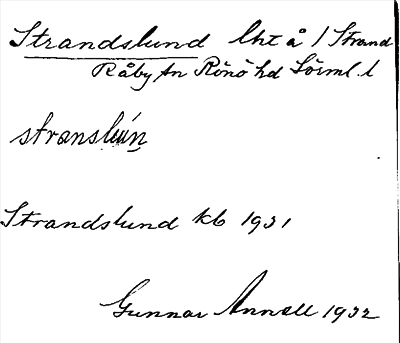 Strandslund lht å 1 Strand
Råby sn Rönö hd Sörml. l
stranslún
Strandslund kb 1931
Gunnar Annell 1932